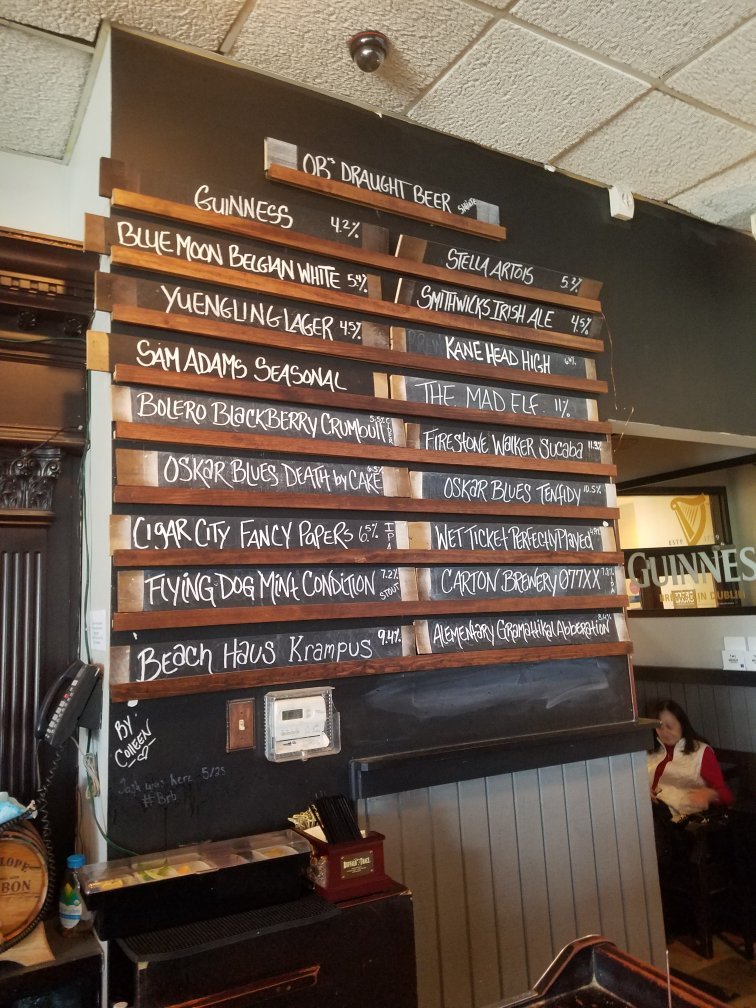 OB's DRAUGHT BEER
GUINNESS 4.2%
BLUE MOON BELGIAN WHITE 5.4%
YUENGLING LAGER 4.5%
SAM ADAMS SEASONAL
BOLERO BLACKBERRY CRUMBULL
OSKAR BLUES DEATH by CAKE 6.5%
CIGAR CITY FANCY PAPERS 6.5% IPA
FLYING DOG MINT CONDITION 7.2% STOUT
BEACH HAUS KRAMPUS 9.4%
STELLA ARTOIS 5.2%
SMITHWICKS IRISH ALE 4.5%
KANE HEAD HIGH
THE MAD ELF 11%
FIRESTONE WALKER SUCABA 11.3%
OSKAR BLUES TENFIDY 10.5%
WET TICKET PERFECTLY PLAYED
CARTON BREWERY 077XX
ALEMENTARY GRAMATTIKAL ABBERATION
BY:
COLLEEN
Josh was here 5/25
#Brb
ESTD 1759
GUINNES
BREWED IN DUBLIN